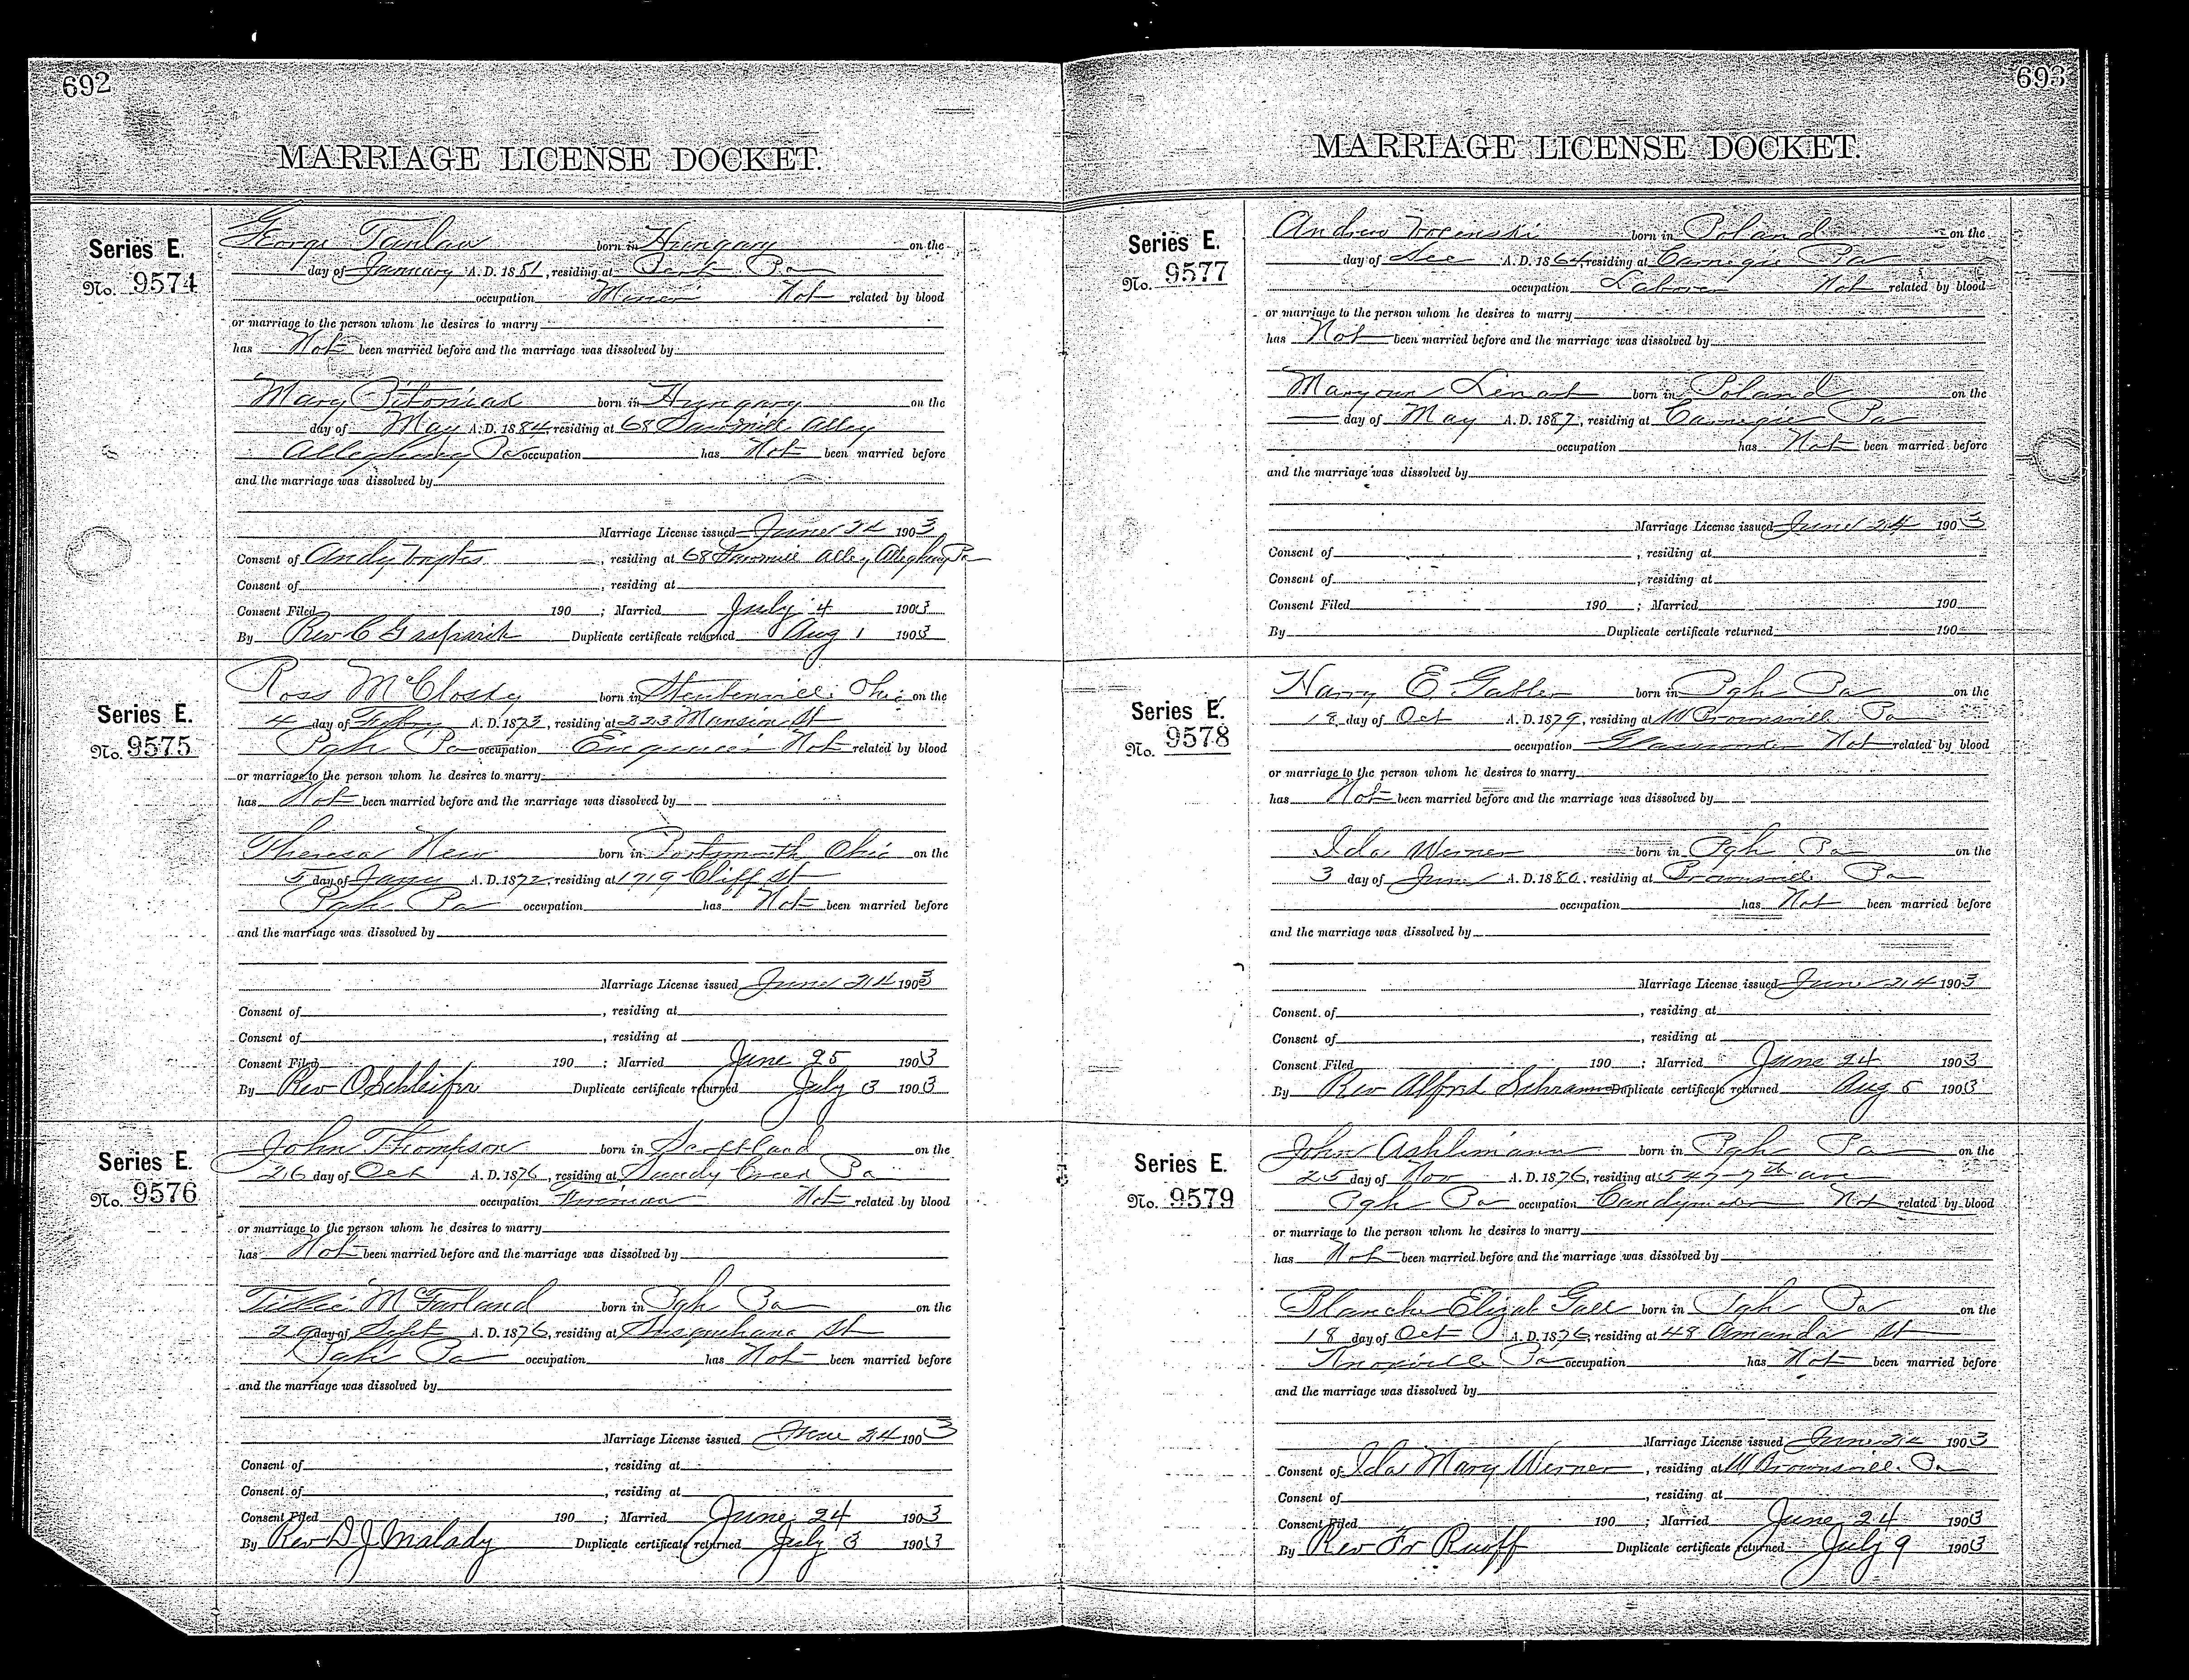 692
MARRIAGE LICENSE DOCKET.
Series E.
No. 9574
George born in Hungary on the
day of January A. D. 1881, residing at Pa
occupation Miner Not related by blood
or marriage to the person whom he desires to marry
has Not been married before and the marriage was dissolved by
Mary born in Hungary on the
day of May A. D. 1884, residing at 68 Sawmill Alley
Allegheny Pa occupation has Not been married before
and the marriage was dissolved by
Marriage License issued June 24 1903
Consent of Andy , residing at 68 Sawmill Alley Allegheny Pa
Consent of , residing at
Consent Filed 190 ; Married July 4 1903
By Rev C Duplicate certificate returned Aug 1 1903
Series E.
No. 9575
Ross McClosky born in Steubenville Ohio on the
4 day of A. D. 1873, residing at 223 Mansion St
Pgh Pa occupation Engineer Not related by blood
or marriage to the person whom he desires to marry
has Not been married before and the marriage was dissolved by
Theresa New born in Portsmouth Ohio on the
5 day of A. D. 1872, residing at 1719 Cliff St
Pgh Pa occupation has Not been married before
and the marriage was dissolved by
Marriage License issued June 24 1903
Consent of , residing at
Consent of , residing at
Consent Filed 190 ; Married June 25 1903
By Rev O Schleifer Duplicate certificate returned July 3 1903
Series E.
No. 9576
John Thompson born in Scottland on the
26 day of Oct A. D. 1876, residing at Sandy Creek Pa
occupation Not related by blood
or marriage to the person whom he desires to marry
has Not been married before and the marriage was dissolved by
Tillie McFarland born in Pgh Pa on the
29 day of Sept A. D. 1876, residing at Susquehana St
Pgh Pa occupation has Not been married before
and the marriage was dissolved by
Marriage License issued June 24 1903
Consent of , residing at
Consent of , residing at
Consent Filed 190 ; Married June 24 1903
By Rev D J Malady Duplicate certificate returned July 3 1903
693
MARRIAGE LICENSE DOCKET.
Series E.
No. 9577
Andrew born in Poland on the
day of Dec A. D. 1864, residing at Carnegie Pa
occupation Laborer Not related by blood
or marriage to the person whom he desires to marry
has Not been married before and the marriage was dissolved by
Maryan Lenart born in Poland on the
day of May A. D. 1887, residing at Carnegie Pa
occupation has Not been married before
and the marriage was dissolved by
Marriage License issued June 24 1903
Consent of , residing at
Consent of , residing at
Consent Filed 190 ; Married 190
By Duplicate certificate returned 190
Series E.
No. 9578
Harry E. Gabler born in Pgh Pa on the
18 day of Oct A. D. 1879, residing at W Brownsville Pa
occupation Glassworker Not related by blood
or marriage to the person whom he desires to marry
has Not been married before and the marriage was dissolved by
Ida Werner born in Pgh Pa on the
3 day of June A. D. 1880, residing at Brownsville Pa
occupation has Not been married before
and the marriage was dissolved by
Marriage License issued June 24 1903
Consent of , residing at
Consent of , residing at
Consent Filed 190 ; Married June 24 1903
By Rev Alfred Schramm Duplicate certificate returned Aug 5 1903
Series E.
No. 9579
John Ashlimann born in Pgh Pa on the
25 day of Nov A. D. 1876, residing at 547-7th ave
Pgh Pa occupation Candymaker Not related by blood
or marriage to the person whom he desires to marry
has Not been married before and the marriage was dissolved by
Blanche Elizab Gall born in Pgh Pa on the
18 day of Oct A. D. 1876, residing at 48 Amanda St
Knoxville Pa occupation has Not been married before
and the marriage was dissolved by
Marriage License issued June 24 1903
Consent of Ida Mary Werner , residing at W Brownsville Pa
Consent of , residing at
Consent Filed 190 ; Married June 24 1903
By Rev Fr Ruoff Duplicate certificate returned July 9 1903